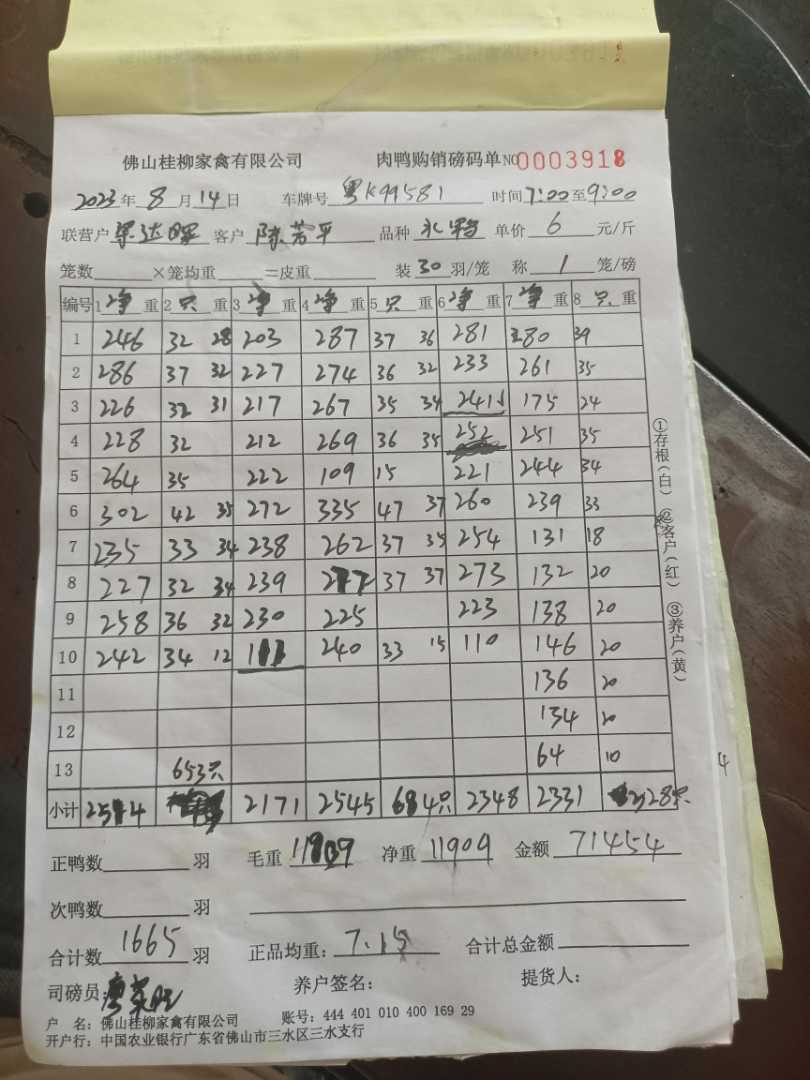 佛山桂柳家禽有限公司 肉鸭购销磅码单 NO 0003918
2023年8月14日 车牌号 粤K99581 时间7:00至9:00
联营户 客户 陈芳平 品种 单价 6 元/斤
笼数 ×笼均重 =皮重 装 30 羽/笼 称 1 笼/磅
编号 1 净 重 2 只 重 3 净 重 4 净 重 5 只 重 6 净 重 7 净 重 8 只 重
1 246 32 28 203 287 37 36 281 280 39
2 286 37 32 227 274 36 32 233 261 35
3 226 32 31 217 267 35 34 241 175 24
4 228 32 212 269 36 35 252 251 35
5 264 35 222 109 15 221 244 34
6 302 42 35 272 335 47 37 260 239 33
7 235 33 34 238 262 37 35 254 131 18
8 227 32 34 239 277 37 37 273 132 20
9 258 36 32 230 225 223 138 20
10 242 34 12 111 240 33 15 110 146 20
11 136 20
12 134 20
13 653只 64 10
小计 2514 2171 2545 684只 2348 2331 328只
正鸭数 羽 毛重 净重 11909 金额 71454
次鸭数 羽
合计数 1665 羽 正品均重: 7.15 合计总金额
司磅员: 养户签名: 提货人:
户 名: 佛山桂柳家禽有限公司 账号: 444 401 010 400 169 29
开户行: 中国农业银行广东省佛山市三水区三水支行
①存根(白) ②客户(红) ③养户(黄)